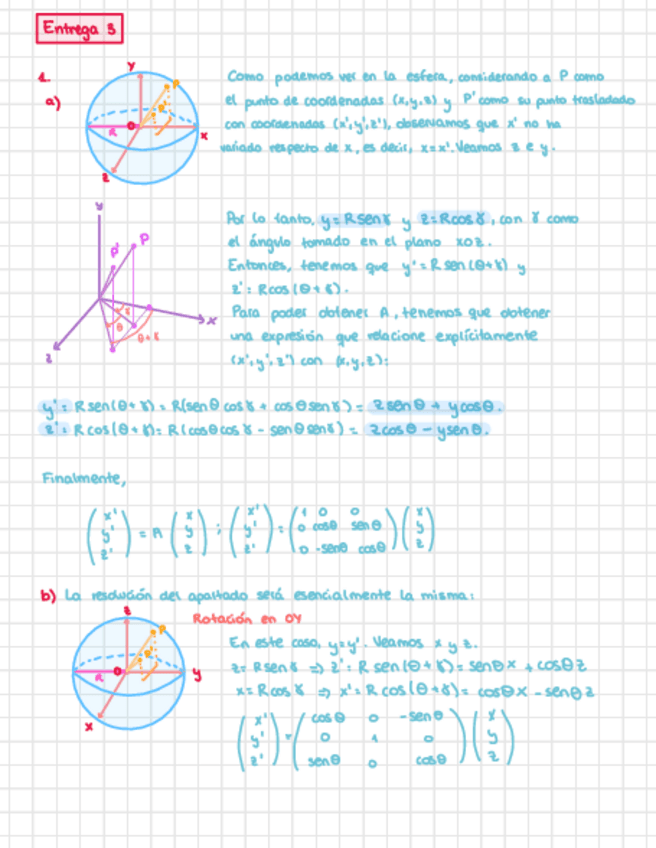 Entrega 3
1.
a)
y
P
P'
R
O
x
z
Como podemos ver en la esfera, considerando a P como
el punto de coordenadas (x,y,z) y P' como su punto trasladado
con coordenadas (x',y',z'), observamos que x' no ha
variado respecto de x, es decir, x=x'. Veamos z e y.
y
P'
P
x
z
γ
θ
θ+γ
Por lo tanto, y=Rsenγ y z=Rcosγ, con γ como
el ángulo tomado en el plano xOz.
Entonces, tenemos que y'=Rsen(θ+γ) y
z'=Rcos(θ+γ).
Para poder obtener A, tenemos que obtener
una expresión que relacione explícitamente
(x',y',z') con (x,y,z):
y'= Rsen(θ+γ)= R(senθ cosγ + cosθ senγ)= zsenθ + ycosθ.
z'= Rcos(θ+γ)= R(cosθ cosγ - senθ senγ) = zcosθ - ysenθ.
Finalmente,
(x' y' z') = A (x y z) ; (x' y' z') = (1 0 0
0 cosθ senθ
0 -senθ cosθ) (x y z)
b) La resolución del apartado será esencialmente la misma:
Rotación en OY
z
P
R
O
y
x
En este caso, y=y'. Veamos x y z.
z=Rsenγ ⇒ z'=Rsen(θ+γ)= senθx + cosθz
x=Rcosγ ⇒ x'=Rcos(θ+γ)= cosθx - senθz
(x' y' z') = (cosθ 0 -senθ
0 1 0
senθ 0 cosθ) (x y z)